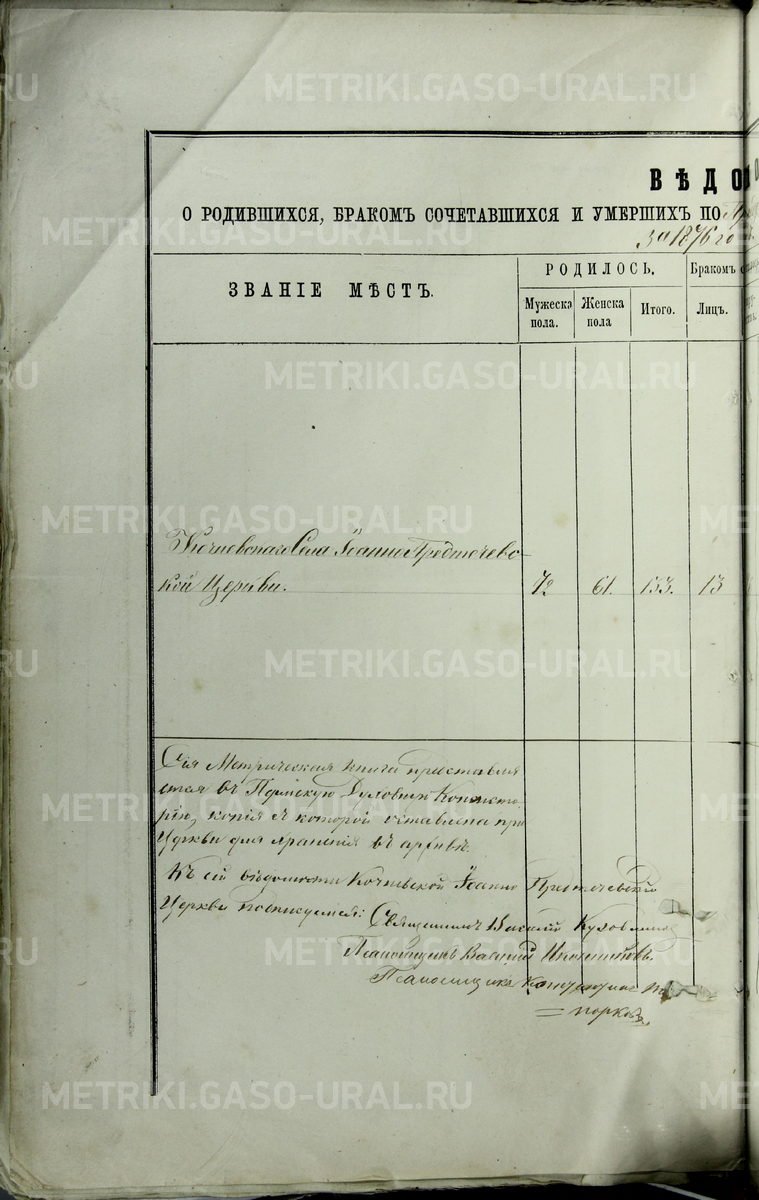 METRIKI.GASO-URAL.RU
ВѢДО
О РОДИВШИХСЯ, БРАКОМЪ СОЧЕТАВШИХСЯ И УМЕРШИХЪ ПО
За 1876 го
ЗВАНІЕ МѢСТЪ.
РОДИЛОСЬ.
Бракомъ
Мужеска пола.
Женска пола
Итого.
Лицъ.
Кочневскаго Села Іоанно Предтечевс-
кой Церкви.
72
61.
133.
13
Сія Метрическая книга представля
ется въ Пермскую Духовную Консисто
рію, копія съ которой оставлена при
Церкви для храненія въ архивѣ.
Къ сей вѣдомости Кочневской Іоанно Предтечевской
Церкви подписуемся: Священникъ Василій
Псаломщикъ Иконниковъ.
Псаломщикъ
порковъ